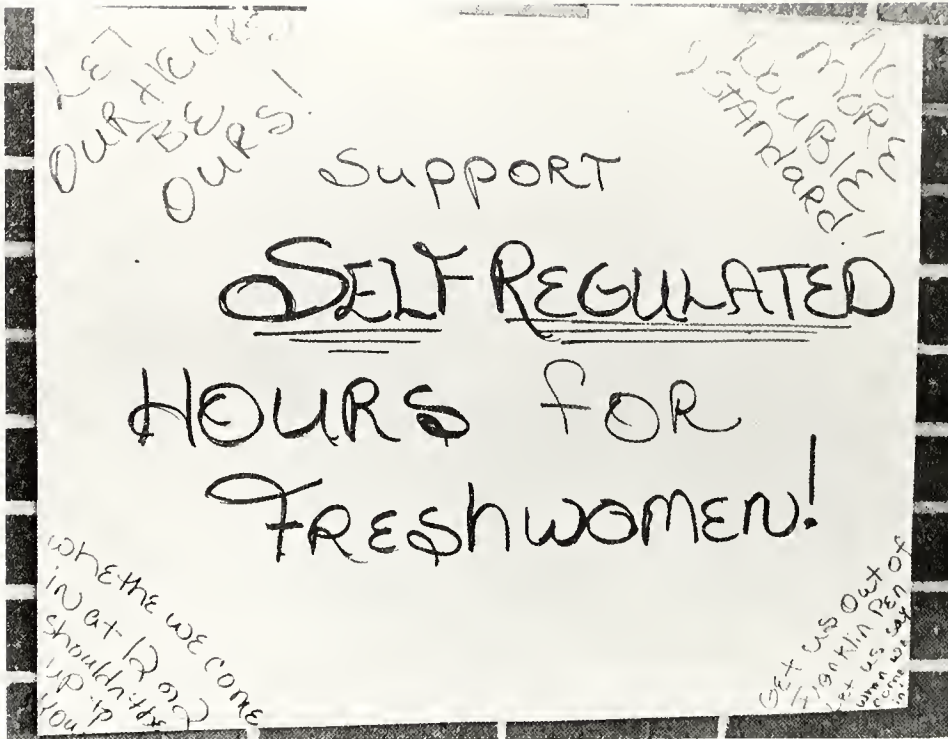 LET
OUR HOURS
BE
OURS!
NO
MORE
DOUBLE
STANDARD!
Support
SELF REGULATED
HOURS for
FRESHWOMEN!
whethe we come
in at 12 or 2
shouldn't
up
you
Get us out of
Franklin Pen
Let us say
when we
come
in!